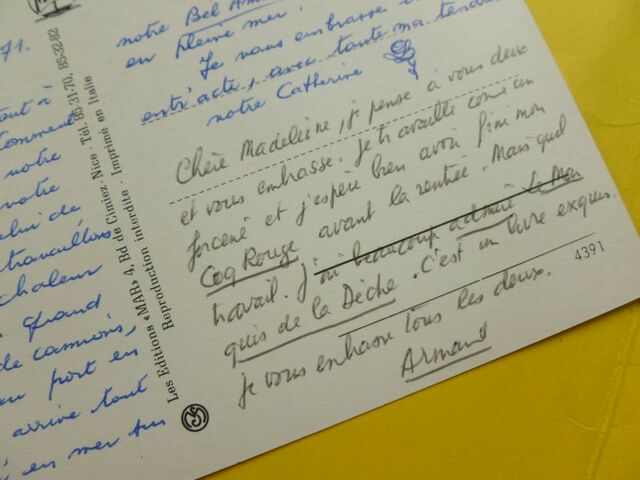 71.
tout à
comment
notre
votre
celui de
travaillons
chaleur
grand
de camions,
au port en
arrive tout
en mer sur
Les Editions «MAR» 4, Bd de Cimiez. Nice - Tél. 85-31-70, 85-32-82
Reproduction interdite - Imprimé en Italie
notre Bel
en pleine mer.
Je vous embrasse
entr'acte, avec toute ma tendresse
notre Catherine
Chère Madeleine, je pense à vous deux
et vous embrasse. Je travaille comme un
forcené et j'espère bien avoir fini mon
Coq Rouge avant la rentrée. Mais quel
travail. J'ai beaucoup admiré le Mar
quis de la Dèche. C'est un livre exquis.
Je vous embrasse tous les deux.
Armand
4391